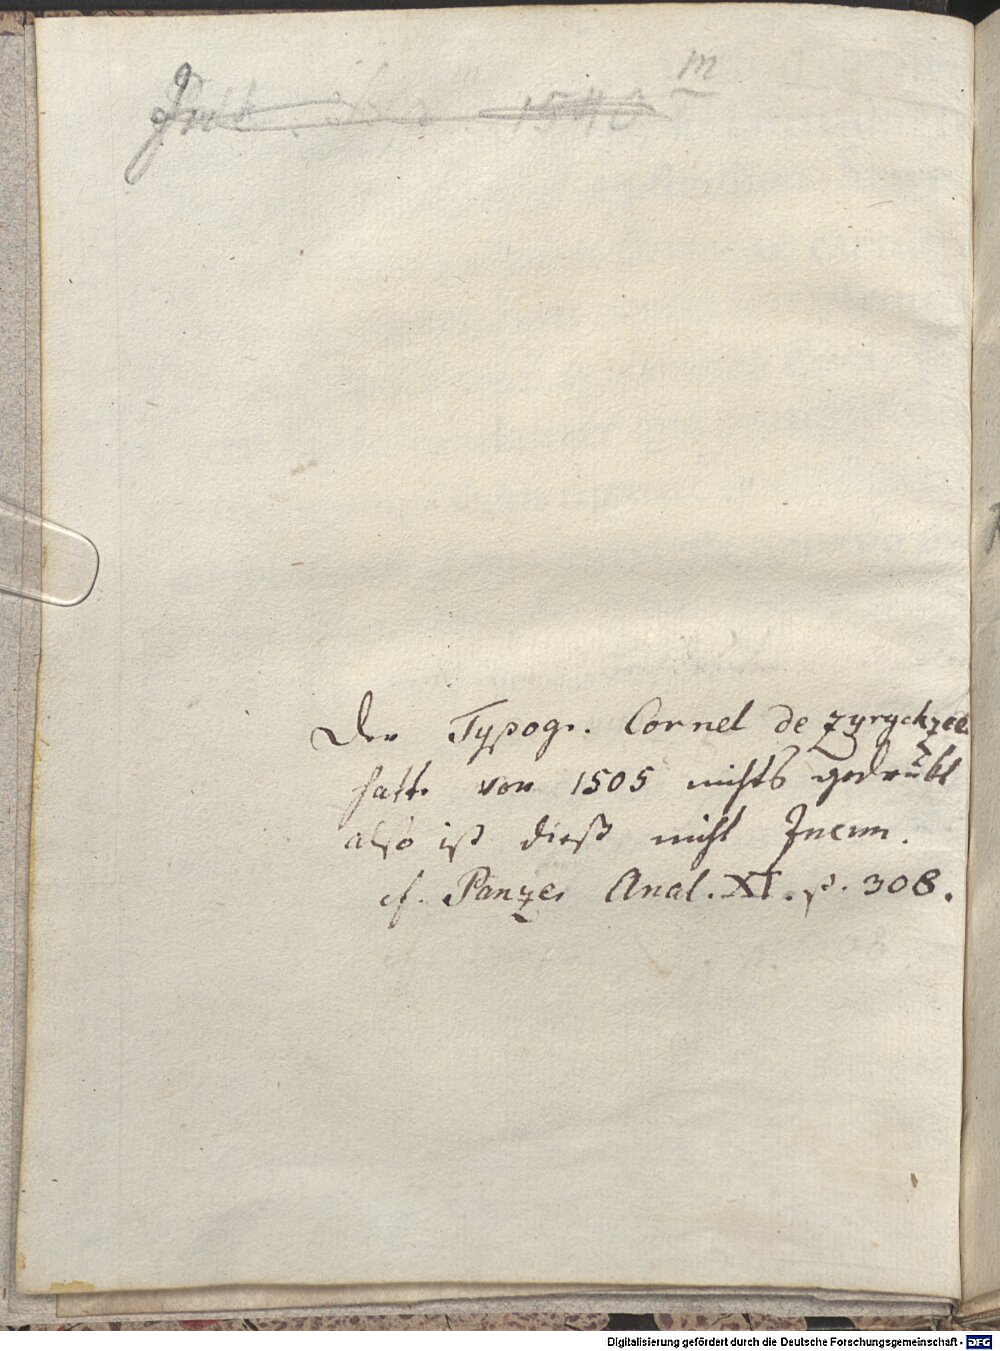 1540 m
Der Typogr. Cornel de Zyryckzee
hatte vor 1505 nichts gedrukt
also ist dieß nicht Incun.
cf. Panzer Anal. XI. p. 308.
Digitalisierung gefördert durch die Deutsche Forschungsgemeinschaft - DFG